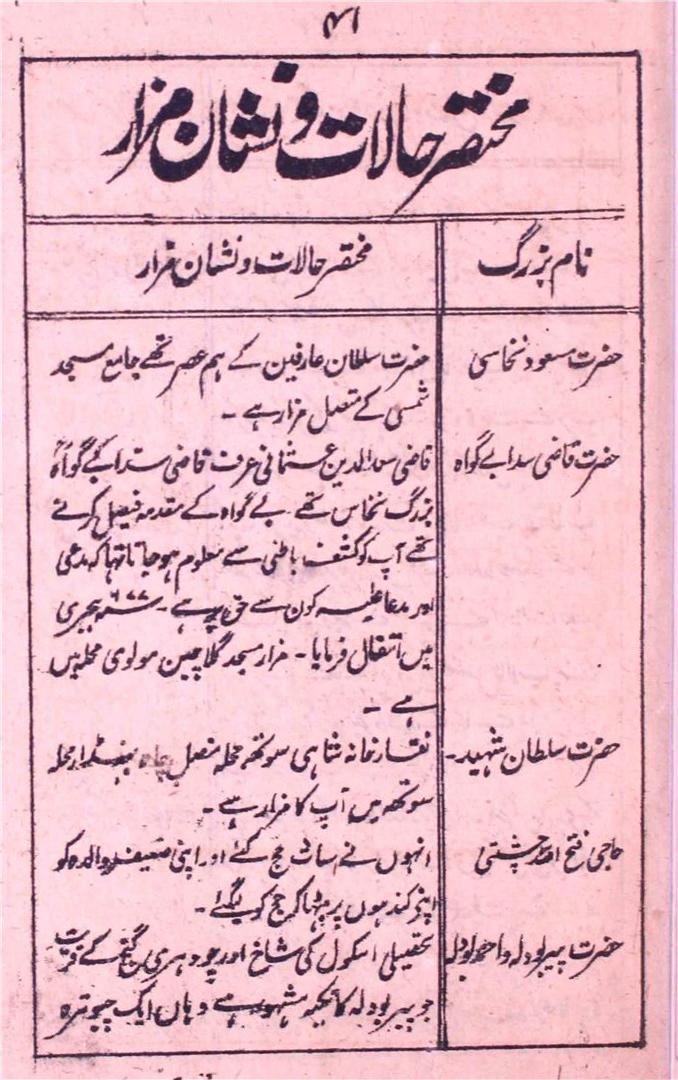 ۴۱
مختصر حالات و نشان مزار
نام بزرگ
مختصر حالات و نشان مزار
حضرت مسعود نخاسی
حضرت سلطان عارفین کے ہم عصر تھے جامع مسجد
شمسی کے متصل مزار ہے ۔
حضرت قاضی سدا بے گواہ
قاضی سعد الدین عثمانی عرف قاضی سدا بے گواہ
بزرگ نخاس تھے بے گواہ کے مقدمہ فیصل کرتے
تھے آپ کو کشف باطنی سے معلوم ہو جاتا تھا کہ مدعی
اور مدعا علیہ کون سے حق پر ہے ۔ ۶۷۷ ہجری
میں انتقال فرمایا ۔ مزار مسجد گلاچین مولوی محلہ میں
ہے ۔
حضرت سلطان شہید ۔
نقار خانہ شاہی سوتھ محلہ متصل چاہ محلہ
سوتھ میں آپ کا مزار ہے ۔
حاجی فتح اللہ چشتی
انہوں نے سات حج کئے اور اپنی ضعیفہ والدہ کو
اپنے کندھوں پر بٹھا کر حج کو لیگئے ۔
حضرت پیر بودلہ و احمد بودلہ
تحصیلی اسکول کی شاخ اور چودہری گنج کے قریب
جو پیر بودلہ کا تکیہ مشہور ہے وہاں ایک چبوترہ